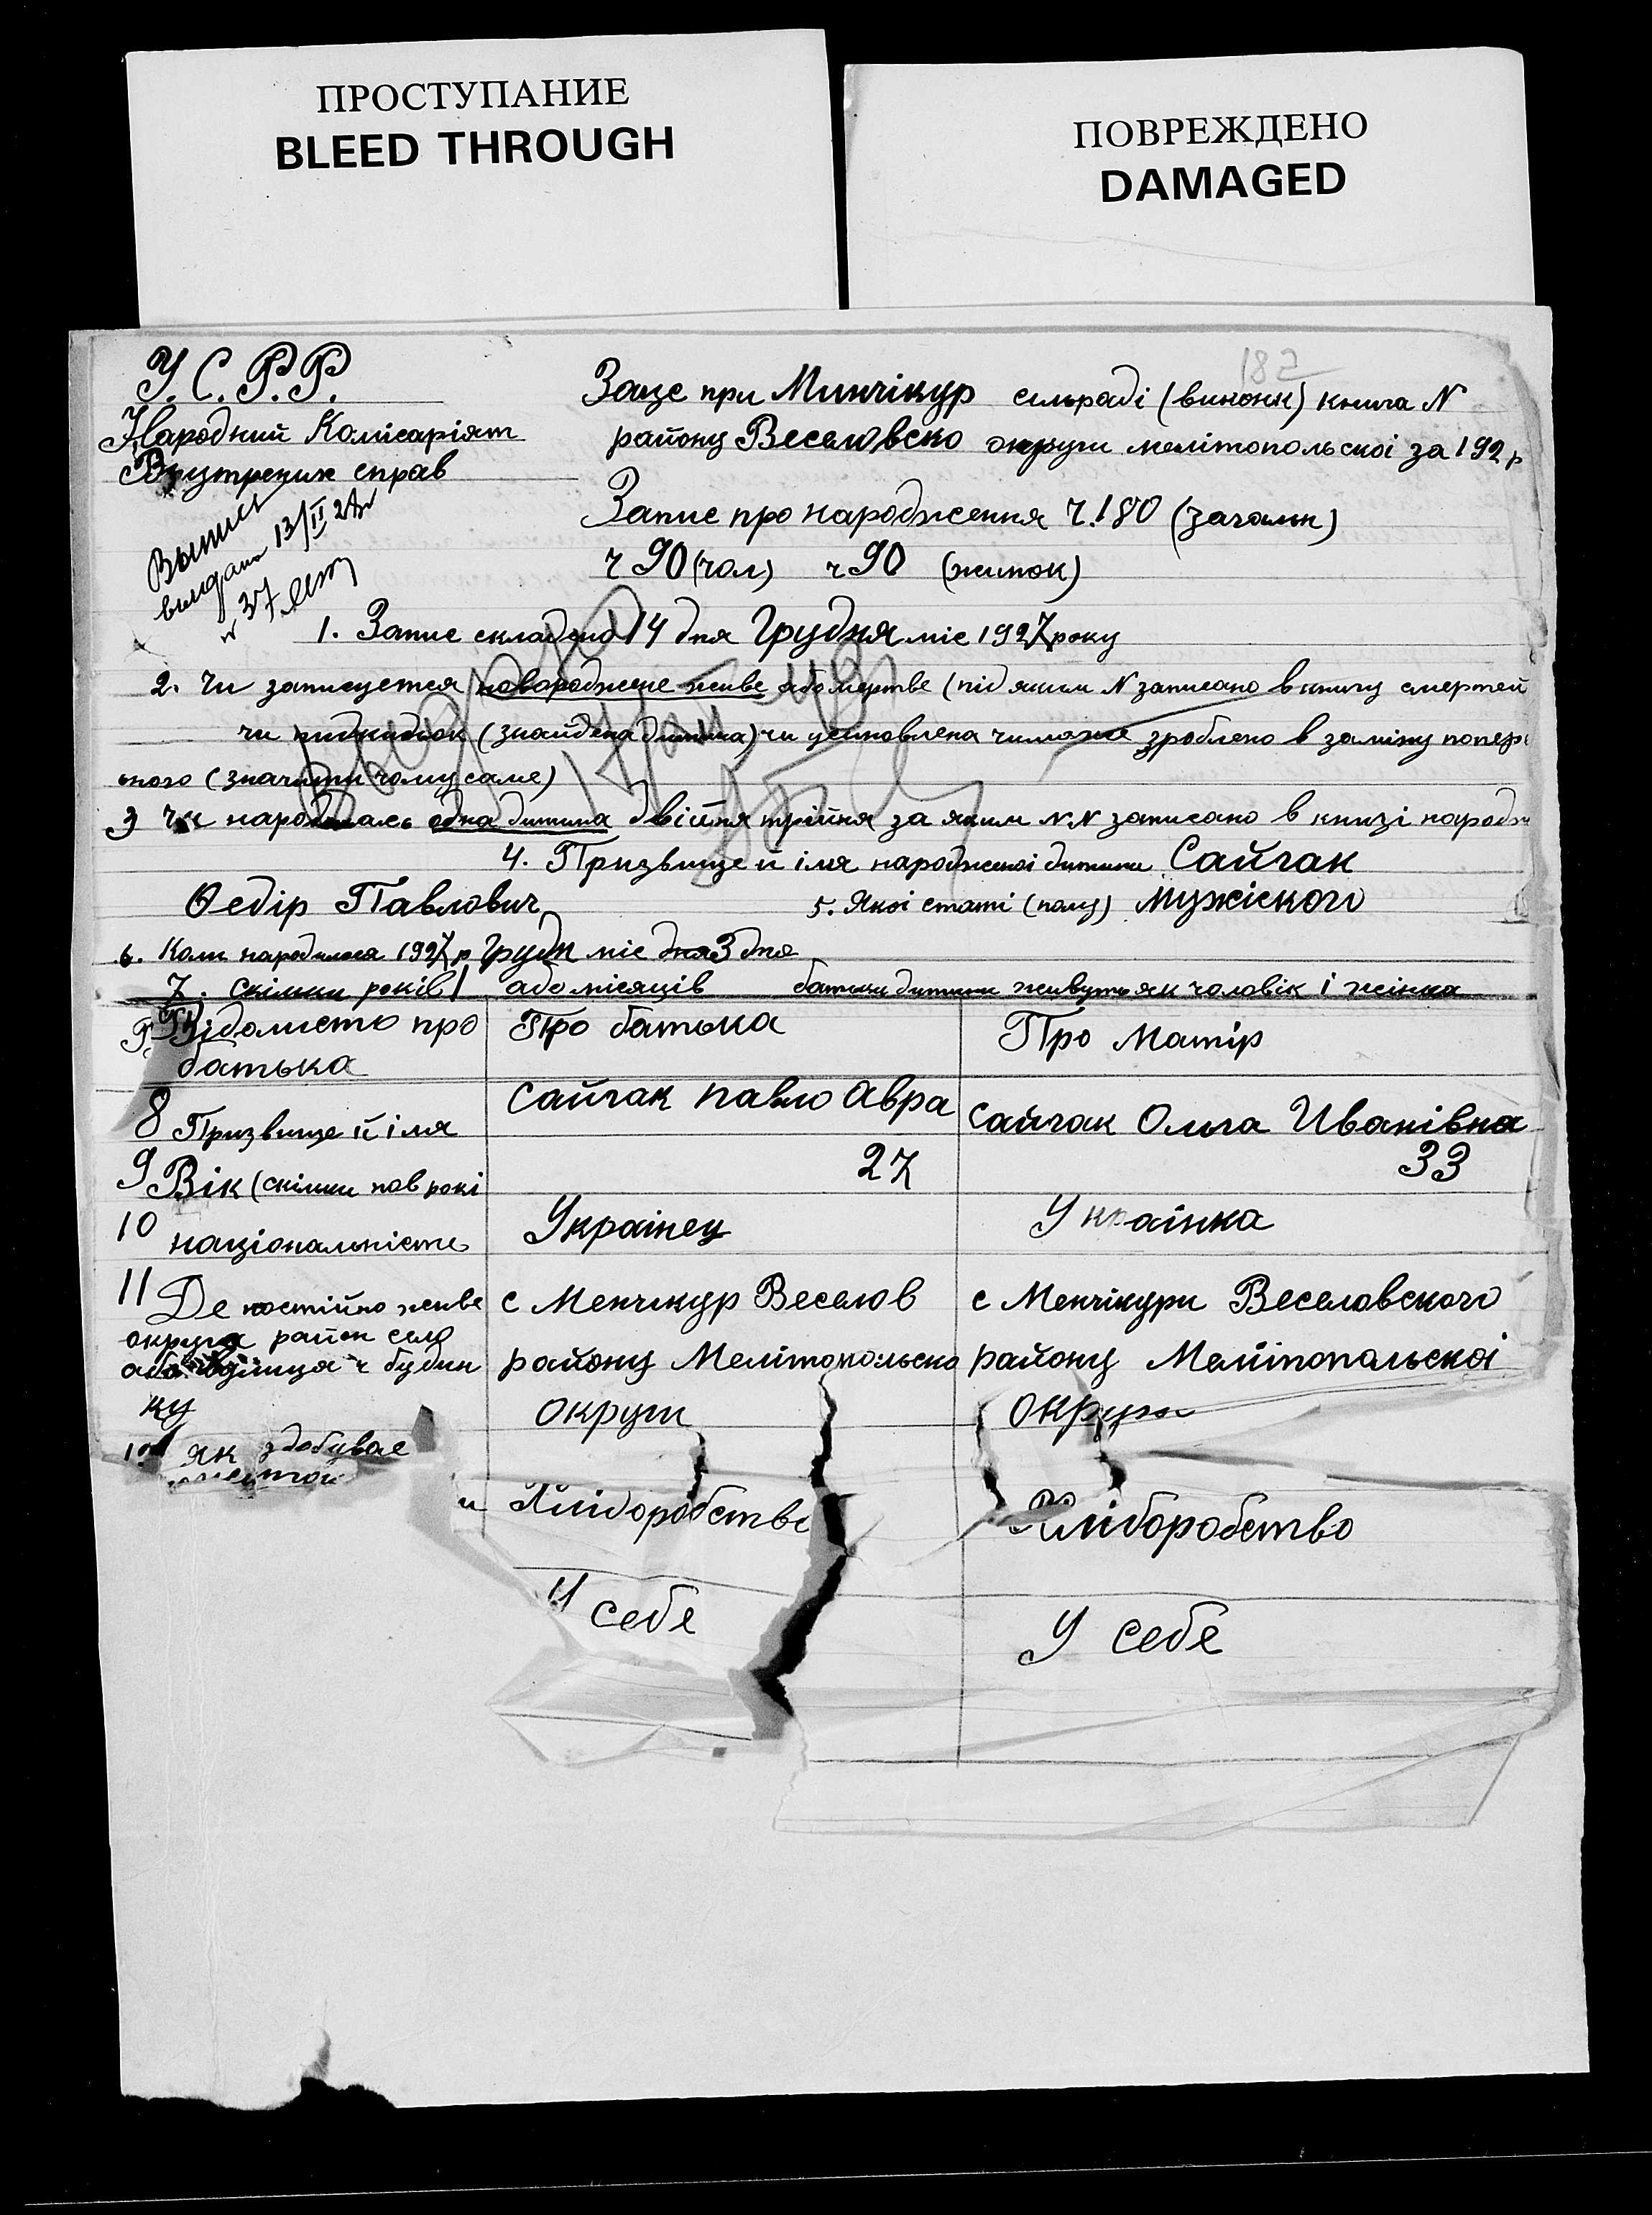 ПРОСТУПАНИЕ
BLEED THROUGH
ПОВРЕЖДЕНО
DAMAGED
187
У.С.Р.Р.
Народний Комісаріят
Внутренних справ
Выпись
выдана 13/II 28г
№ 37
Загс при Минчікур сільраді (виконк) книга N
району Веселовско округи мелітопольскоі за 192 р
Запис про народження ч.180 (загальн)
ч 90 (чол) ч 90 (жинок)
1. Запис складено 14 дня Грудня міс 1927 року
2. Чи записуется новароджене живе або мертве (під яким N записано в книгу смертей
чи підкидьок (знайдена дитина) чи усиновлена чи може зроблено в заміну попер
ького (значити чому саме)
3 Чи народилась одна дитина двійня трійня за яким NN записано в книзі народж
4. Призвище й імя народженоі дитини Сайгак
Федір Павлович 5. Якоі статі (полу) Мужіского
6. Коли народилося 1927 р Грудн міс дня 3 дня
7. Скільки років 1 або місяців батьки дитини живуть як чоловік і жінка
Відомисть про Про батька Про Матір
батька
8 Призвище й імя Сайгак Павло Авра Сайгак Ольга Иванівна
9 Вік (скільки пов рокі 27 33
10 національність Украінец Украінка
11 Де постійно живе с Менчикур Веселов с Менчікури Веселовского
округа район село
або вулиця ч будин району Мелітопольско району Мелітопольскоі
ку округи округи
як здобувае
Хліборобство Хліборобство
У себе У себе